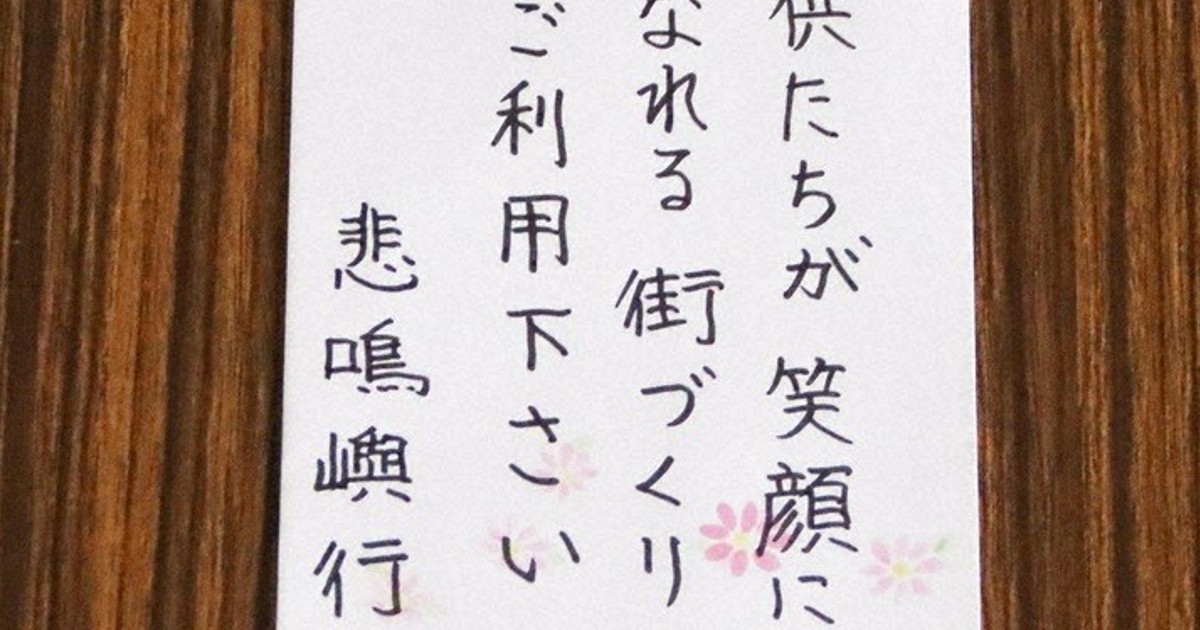 供たちが笑顔に
なれる街づくり
ご利用下さい
悲鳴嶼行